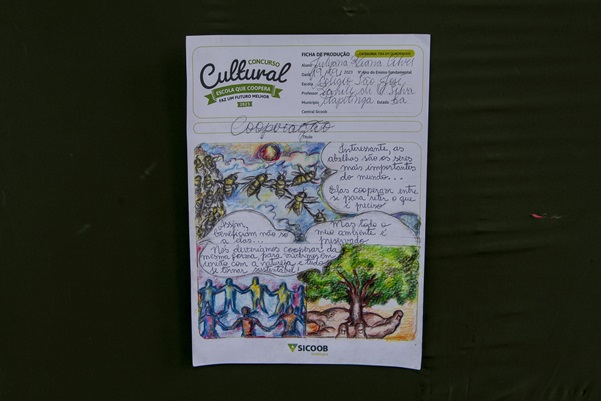 CONCURSO
Cultural
ESCOLA QUE COOPERA
FAZ UM FUTURO MELHOR
2023
FICHA DE PRODUÇÃO
Aluno
Data 2023 5º Ano do Ensino Fundamental
Escola Colégio São José
Professor
Município Itapetinga Estado Ba
Central Sicoob
Cooperação
Título
Interessante, as
abelhas são os seres
mais importantes
do mundo...
Elas cooperam entre
si para reter o que
é preciso
Assim,
beneficiam não só
a elas...
Mas todo o
meio ambiente é
preservado
Nós deveríamos cooperar da
mesma forma, para vivermos em
união com a natureza e tudo
se tornar sustentável!
SICOOB